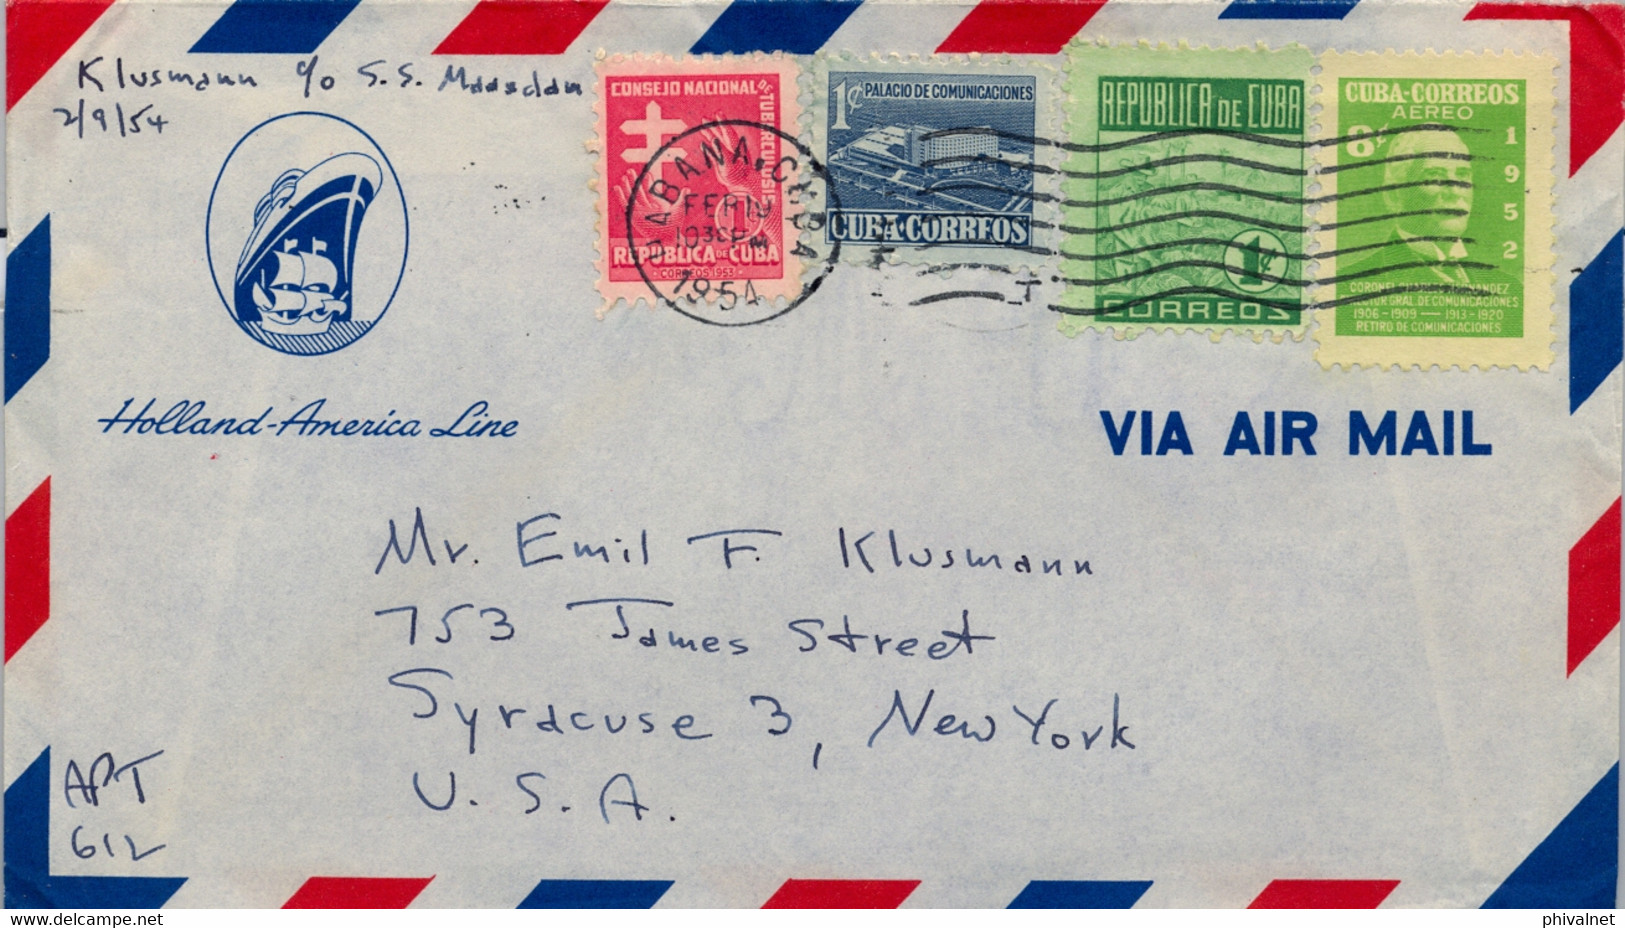 Klusmann c/o S.S. Maasdam
2/9/54
Holland-America Line
CONSEJO NACIONAL DE TUBERCULOSIS
REPUBLICA DE CUBA
CORREOS 1953
HABANA, CUBA
FEB 19
1030 PM
1954
1¢ PALACIO DE COMUNICACIONES
CUBA-CORREOS
REPUBLICA DE CUBA
1¢
CORREOS
CUBA-CORREOS
AEREO
8¢
1952
CORONEL
DIRECTOR GRAL. DE COMUNICACIONES
1906-1909 — 1913-1920
RETIRO DE COMUNICACIONES
VIA AIR MAIL
Mr. Emil F. Klusmann
753 James Street
Syracuse 3, New York
U. S. A.
APT
612
delcampe.net
phivalnet